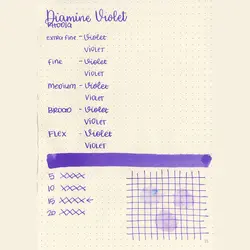 Diamine Violet
Rhodia
extra fine - Violet
Violet
fine - Violet
Violet
Medium - Violet
Violet
Broad - Violet
Violet
FLEX - Violet
Violet
5 XXXX
10 XXXX
15 XXXX ←
20 XXXX